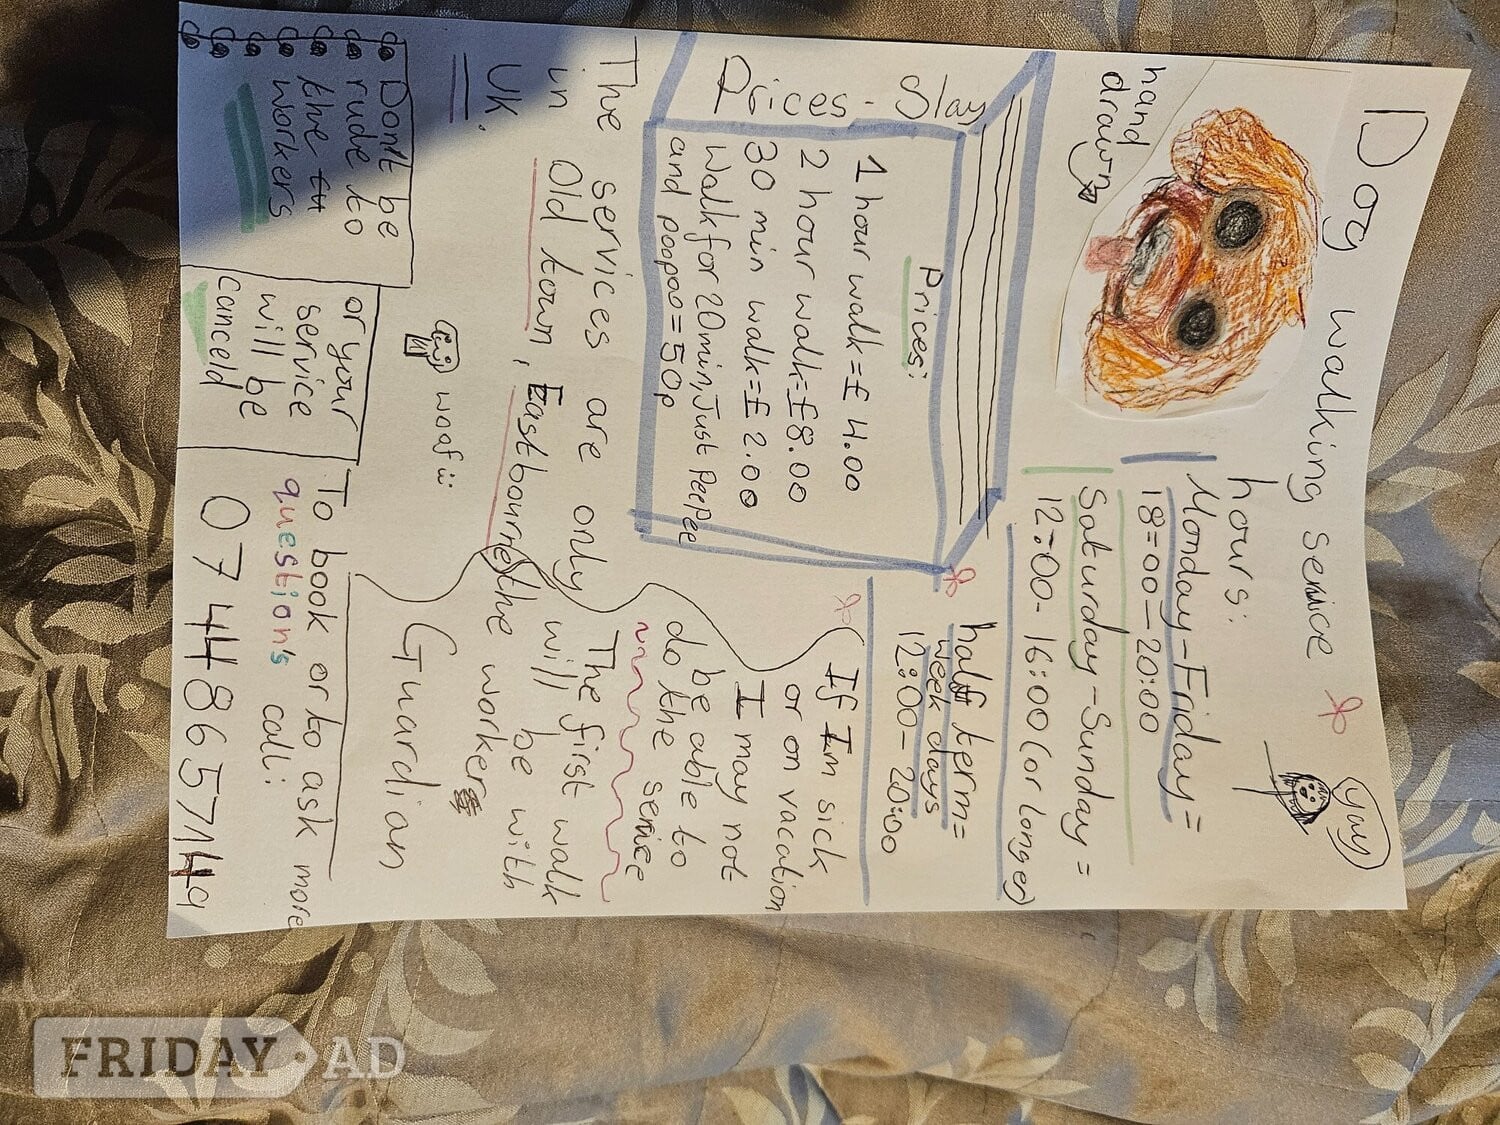 Dog walking service
yuy
hand
drawn
hours:
Monday-Friday=
18=00-20:00
Saturday-Sunday=
12:00-16:00 (or longer)
half term=
week days
12:00-20:00
Prices - Slay
Prices:
1 hour walk=£4.00
2 hour walk=£8.00
30 min walk=£2.00
Walk for 20min, Just Peepee
and poopoo=50p
If Im sick
or on vacation
I may not
be able to
do the service
The services are only
in Old town, Eastbourne
UK.
The first walk
will be with
the worker
Guardian
woof
Don't be
rude to
the
workers
or your
service
will be
canceld
To book or to ask more
question's call:
07448657149
FRIDAY-AD